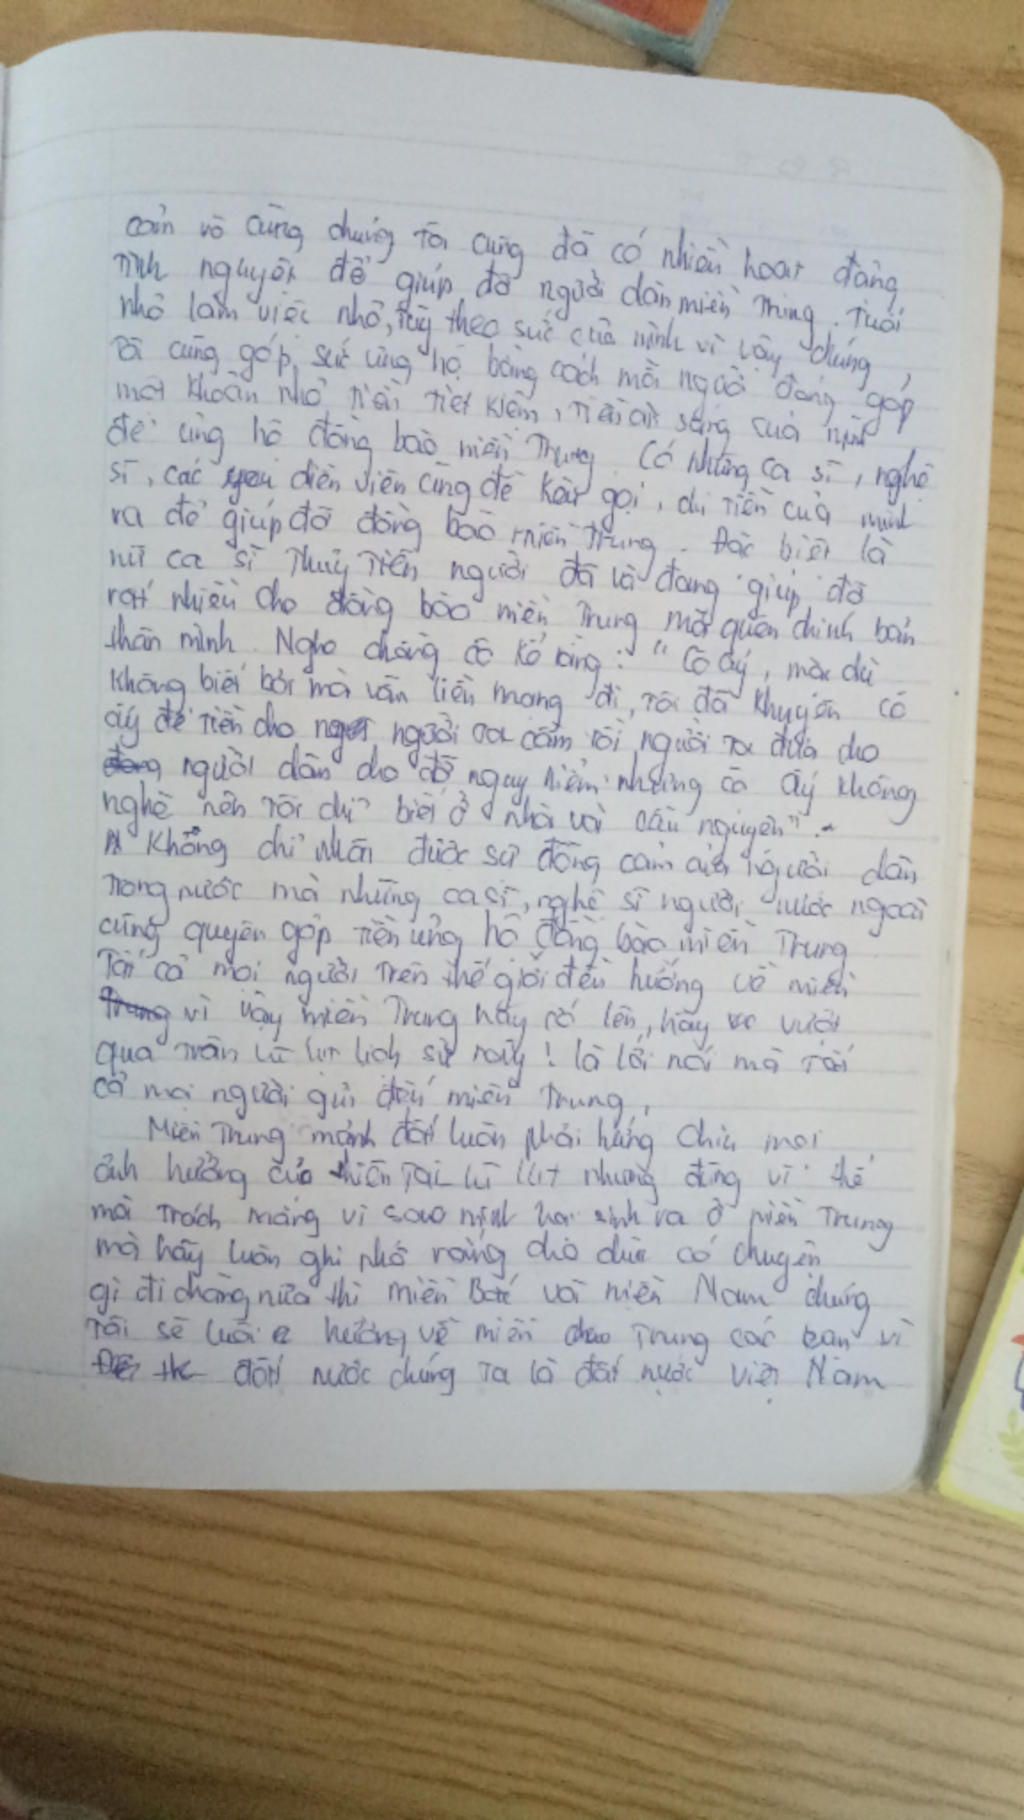 cảm vô cùng chúng tôi cũng đã có nhiều hoạt động
tình nguyện để giúp đỡ người dân miền Trung. Tuổi
nhỏ làm việc nhỏ, tùy theo sức của mình vì vậy chúng
tôi cũng góp sức ủng hộ bằng cách mỗi người đóng góp
một khoản nhỏ tiền tiết kiệm, tiền ăn sáng của mình
để ủng hộ đồng bào miền Trung. Có những ca sĩ, nghệ
sĩ, các diễn viên cũng để kêu gọi, chi tiền của mình
ra để giúp đỡ đồng bào miền Trung. Đặc biệt là
nữ ca sĩ Thủy Tiên người đã và đang giúp đỡ
rất nhiều cho đồng bào miền Trung mà quên chính bản
thân mình. Nghe chồng cô kể rằng: "Cô ấy, mặc dù
không biết bơi mà vẫn liều mạng đi, tôi đã khuyên cô
ấy để tiền cho người ta cầm rồi người ta đưa cho
người dân cho đỡ nguy hiểm nhưng cô ấy không
nghe nên tôi chỉ biết ở nhà và cầu nguyện".
Không chỉ nhận được sự đồng cảm của người dân
trong nước mà những ca sĩ, nghệ sĩ người nước ngoài
cũng quyên góp tiền ủng hộ đồng bào miền Trung
Tất cả mọi người trên thế giới đều hướng về miền
vì vậy miền Trung hãy cố lên, hãy vượt
qua trận lũ lụt lịch sử này! là lời nói mà tất
cả mọi người gửi đến miền Trung,
Miền Trung mảnh đất luôn phải hứng chịu mọi
ảnh hưởng của thiên tai lũ lụt nhưng đừng vì thế
mà trách máng vì sao mình hại sinh ra ở miền Trung
mà hãy luôn ghi nhớ rằng cho dù có chuyện
gì đi chăng nữa thì miền Bắc và miền Nam chúng
tôi sẽ luôn hướng về miền Trung các bạn vì
đất nước chúng ta là đất nước Việt Nam